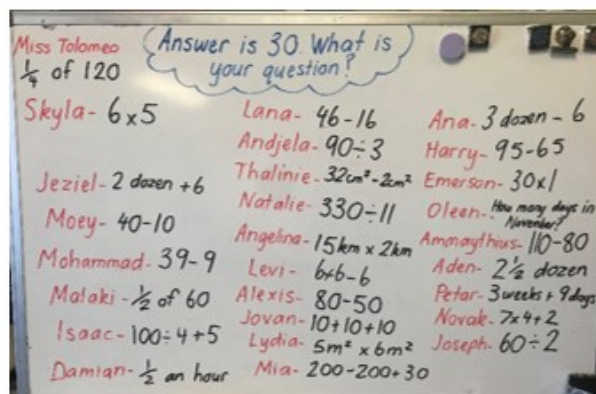 Miss Tolomeo
1/4 of 120
Answer is 30. What is
your question?
Skyla- 6x5
Jeziel- 2 dozen +6
Moey- 40-10
Mohammad- 39-9
Malaki- 1/2 of 60
Isaac- 100÷4+5
Damian- 1/2 an hour
Lana- 46-16
Andjela- 90÷3
Thalinie- 32cm²-2cm²
Natalie- 330÷11
Angelina- 15km x 2km
Levi- 6x6-6
Alexis- 80-50
Jovan- 10+10+10
Lydia- 5m² x 6m²
Mia- 200-200+30
Ana- 3 dozen - 6
Harry- 95-65
Emerson- 30x1
Oleen- How many days in
November?
Ammaythius- 110-80
Aden- 2 1/2 dozen
Petar- 3 weeks + 9 days
Novak- 7x4+2
Joseph- 60÷2